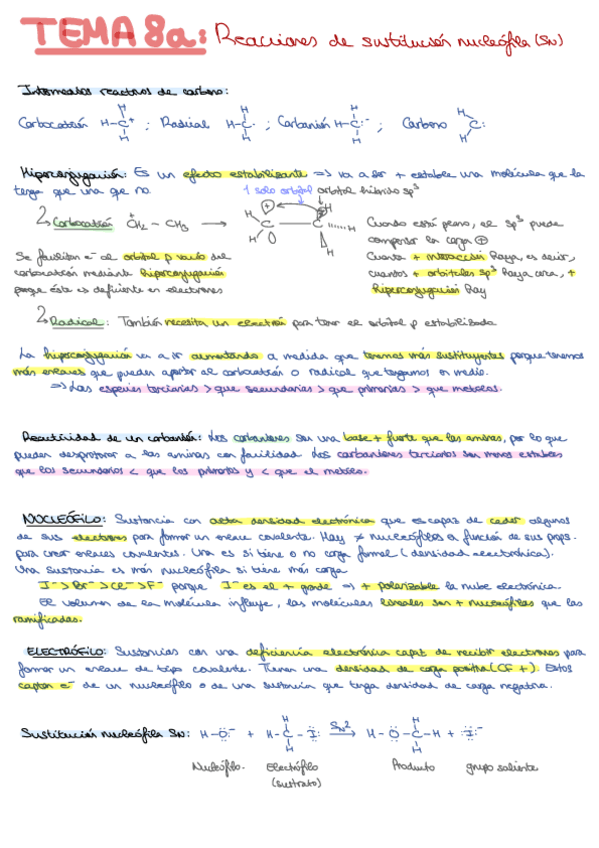 TEMA 8a: Reacciones de sustitución nucleófila (SN)
Intermedios reactivos de carbono:
Carbocatión H-C+ H H ; Radical H-C· H H ; Carbanión H-C:- H H ; Carbeno H H C:
Hiperconjugación: Es un efecto estabilizante => va a ser + estable una molécula que la
tenga que una que no.
1 solo orbital orbital híbrido sp3
Carbocatión CH2+ - CH3 → H H C + C H H H
Cuando esté plano, el sp3 puede
compensar la carga +
Se facilitan e- al orbital p vacío del
carbocatión mediante hiperconjugación
porque éste es deficiente en electrones
Cuanta + interacción haya, es decir,
cuantos + orbitales sp3 haya cerca, +
hiperconjugación hay
Radical: También necesita un electrón para tener el orbital p estabilizado
La hiperconjugación va a ir aumentando a medida que tenemos más sustituyentes porque tenemos
más enlaces que pueden aportar al carbocatión o radical que tengamos en medio.
=> Las especies terciarias > que secundarias > que primarias > que metilos.
Reactividad de un carbanión: Los carbaniones son una base + fuerte que las aminas, por lo que
pueden desprotonar a las aminas con facilidad. Los carbaniones terciarios son menos estables
que los secundarios < que los primarios y < que el metilo.
NUCLEÓFILO: Sustancia con alta densidad electrónica que es capaz de ceder algunos
de sus electrones para formar un enlace covalente. Hay ≠ nucleófilos en función de sus props.
para crear enlaces covalentes. Una es si tiene o no carga formal (densidad electrónica).
Una sustancia es más nucleófila si tiene más carga
I- > Br- > Cl- > F- porque I- es el + grande => + polarizable la nube electrónica.
El volumen de la molécula influye, las moléculas lineales son + nucleófilas que las
ramificadas.
ELECTRÓFILO: Sustancias con una deficiencia electrónica capaz de recibir electrones para
formar un enlace de tipo covalente. Tienen una densidad de carga positiva (CF +). Estos
captan e- de un nucleófilo o de una sustancia que tenga densidad de carga negativa.
Sustitución nucleófila SN: H-O:- + H-C-I: H H SN2 → H-O-C-H H H + :I:-
Nucleófilo. Electrófilo Producto grupo saliente
(sustrato)